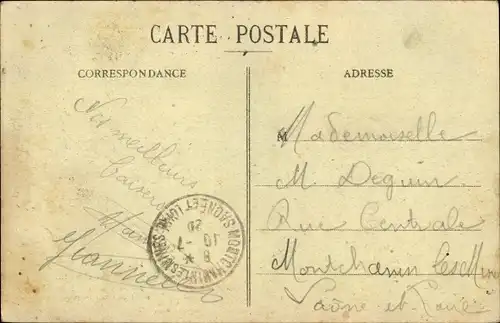 CARTE POSTALE
CORRESPONDANCE
Nos meilleurs
baisers
ADRESSE
Mademoiselle
M. Deguin
Rue Centrale
Montchanin les Mines
Saône et Loire
MONTCHANIN-LES-MINES
SAONE ET LOIRE
8 *
10 - 7
20